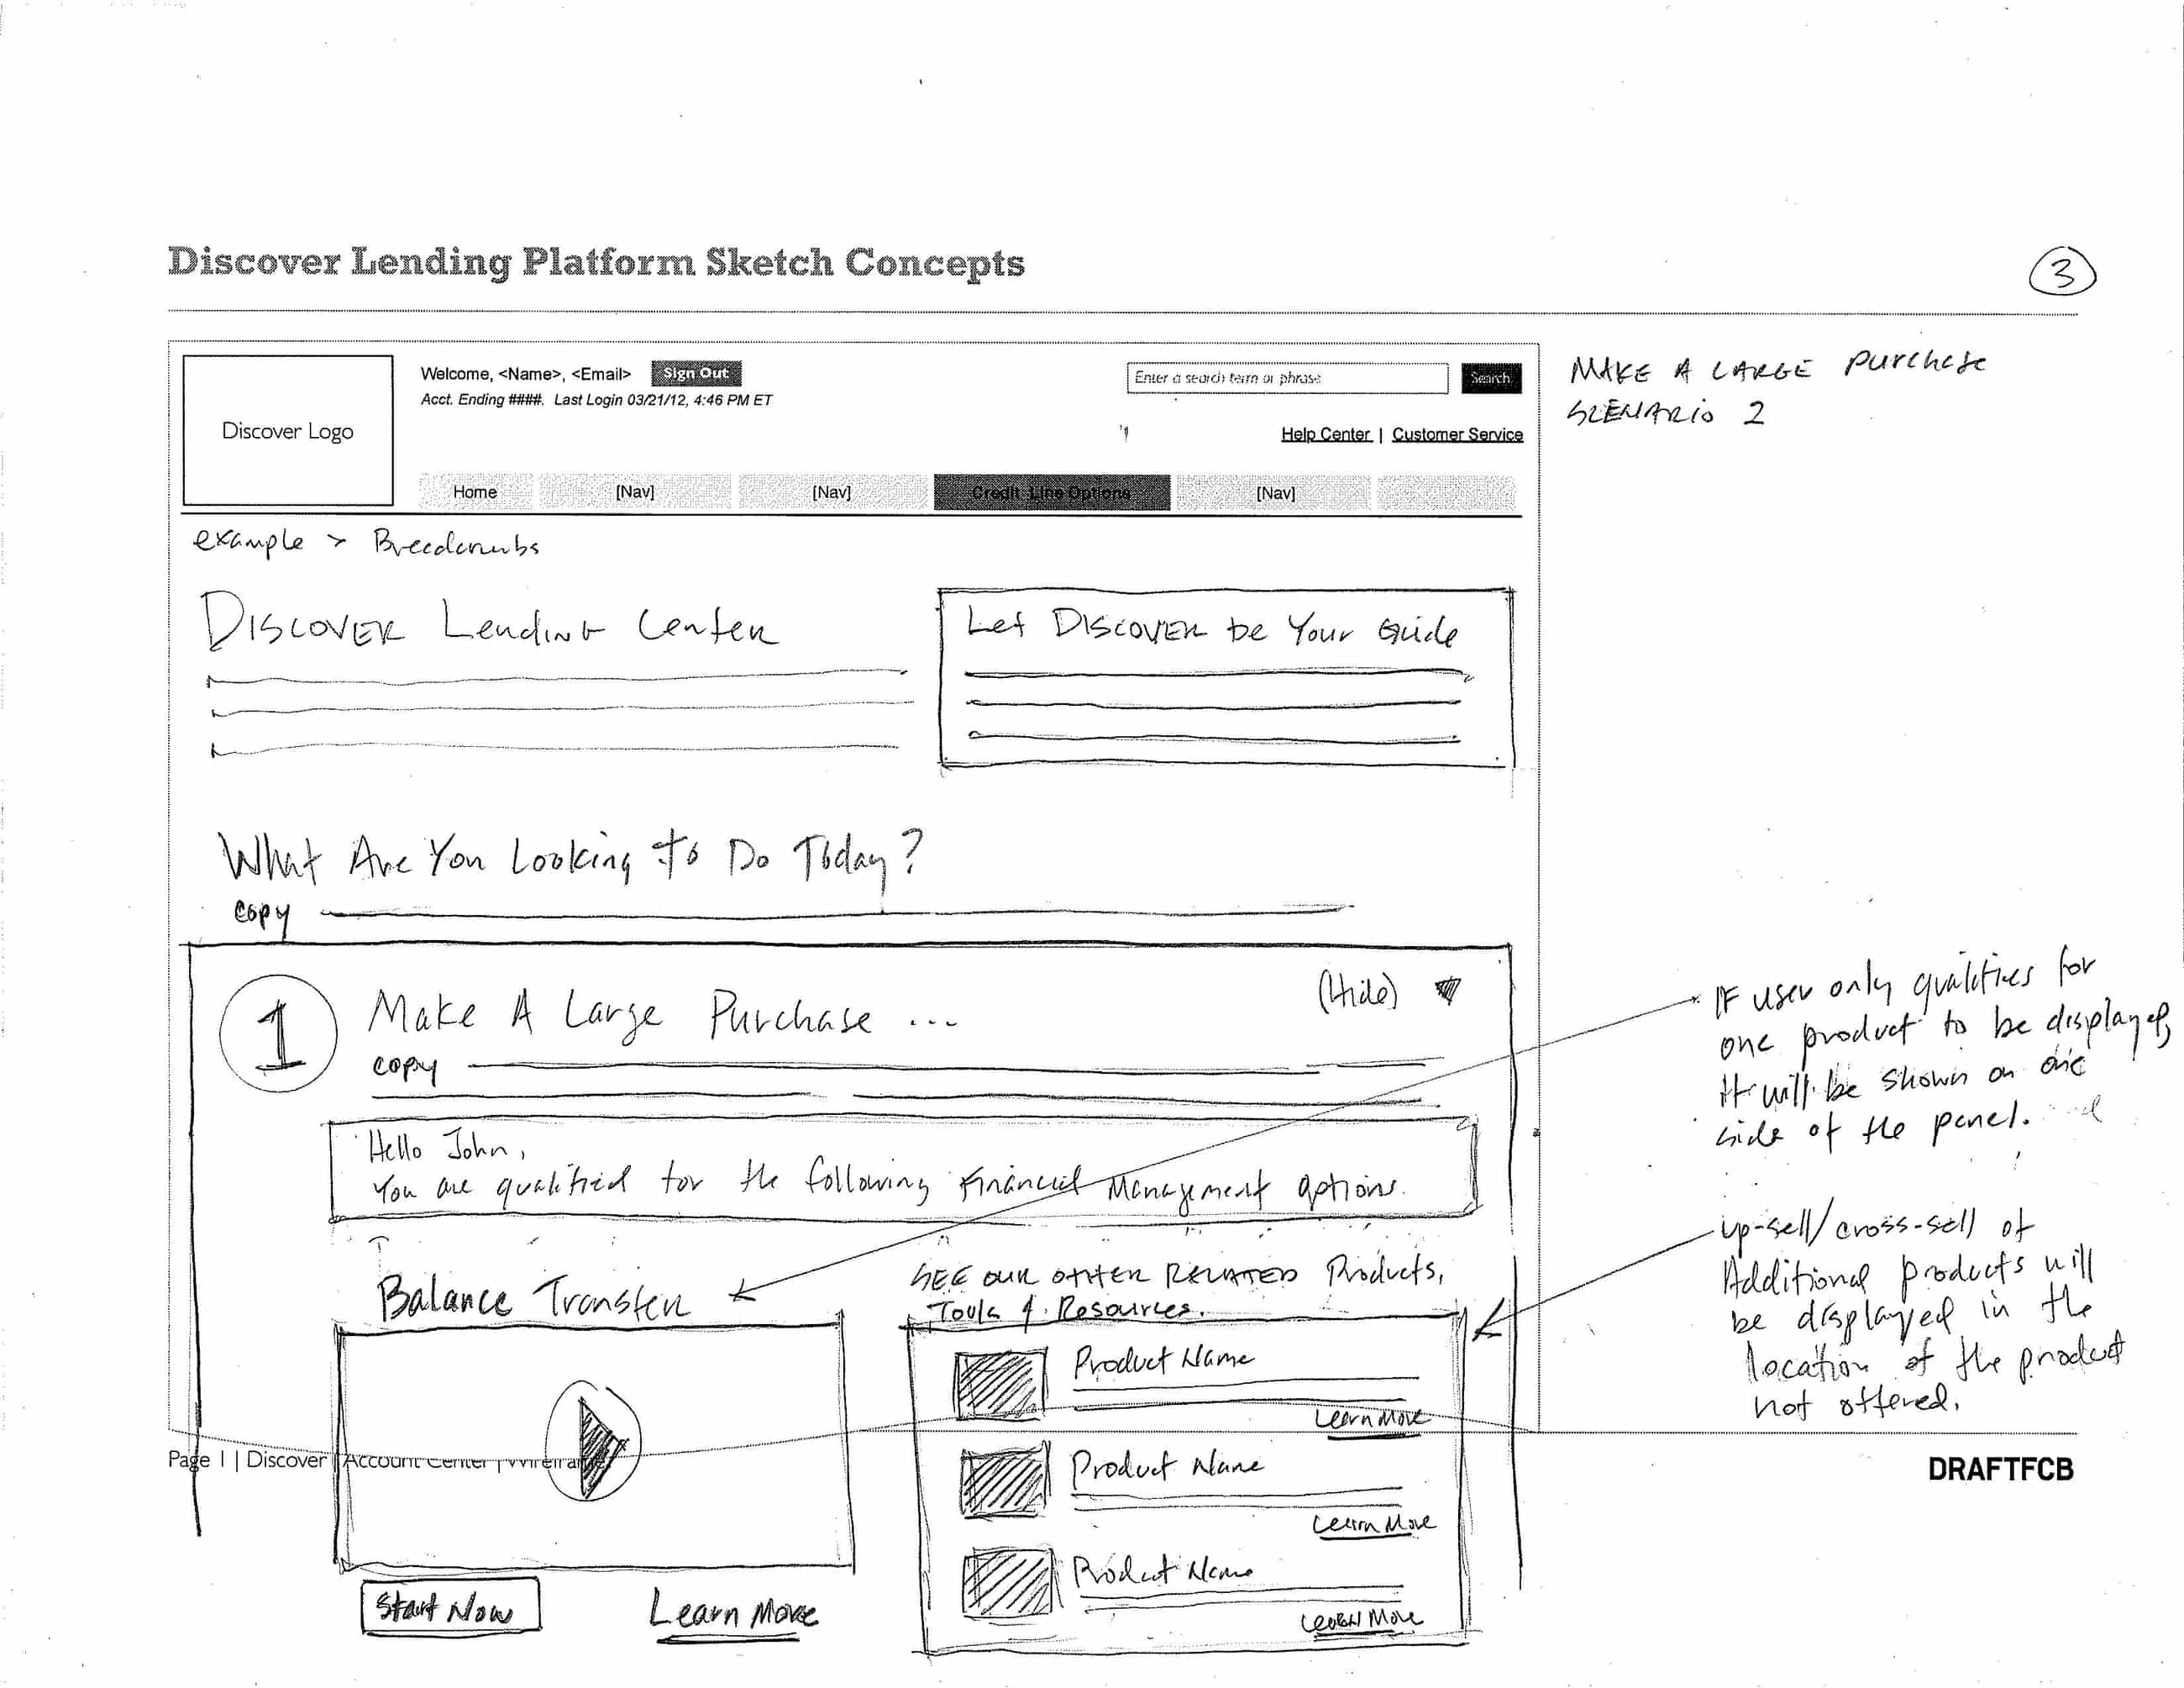 Discover Lending Platform Sketch Concepts
3
Welcome, <Name>, <Email> Sign Out
Acct. Ending ####. Last Login 03/21/12, 4:46 PM ET
Enter a search term or phrase Search
Discover Logo
Help Center | Customer Service
Home [Nav] [Nav] Credit Line Options [Nav]
MAKE A LARGE Purchase
SCENARIO 2
example > Breadcrumbs
DISCOVER Lending Center
Let DISCOVER be Your Guide
What Are You Looking to Do Today?
copy
1
Make A Large Purchase ...
(Hide)
copy
Hello John,
You are qualified for the following Financial Management options.
Balance Transfer
Start Now
Learn More
SEE OUR OTHER RELATED Products,
Tools & Resources.
Product Name
Learn More
Product Name
Learn More
Product Name
Learn More
IF user only qualifies for
one product to be displayed,
it will be shown on one
side of the panel.
up-sell/cross-sell of
Additional products will
be displayed in the
location of the product
not offered.
Page 1 | Discover | Account Center | Wireframe
DRAFTFCB